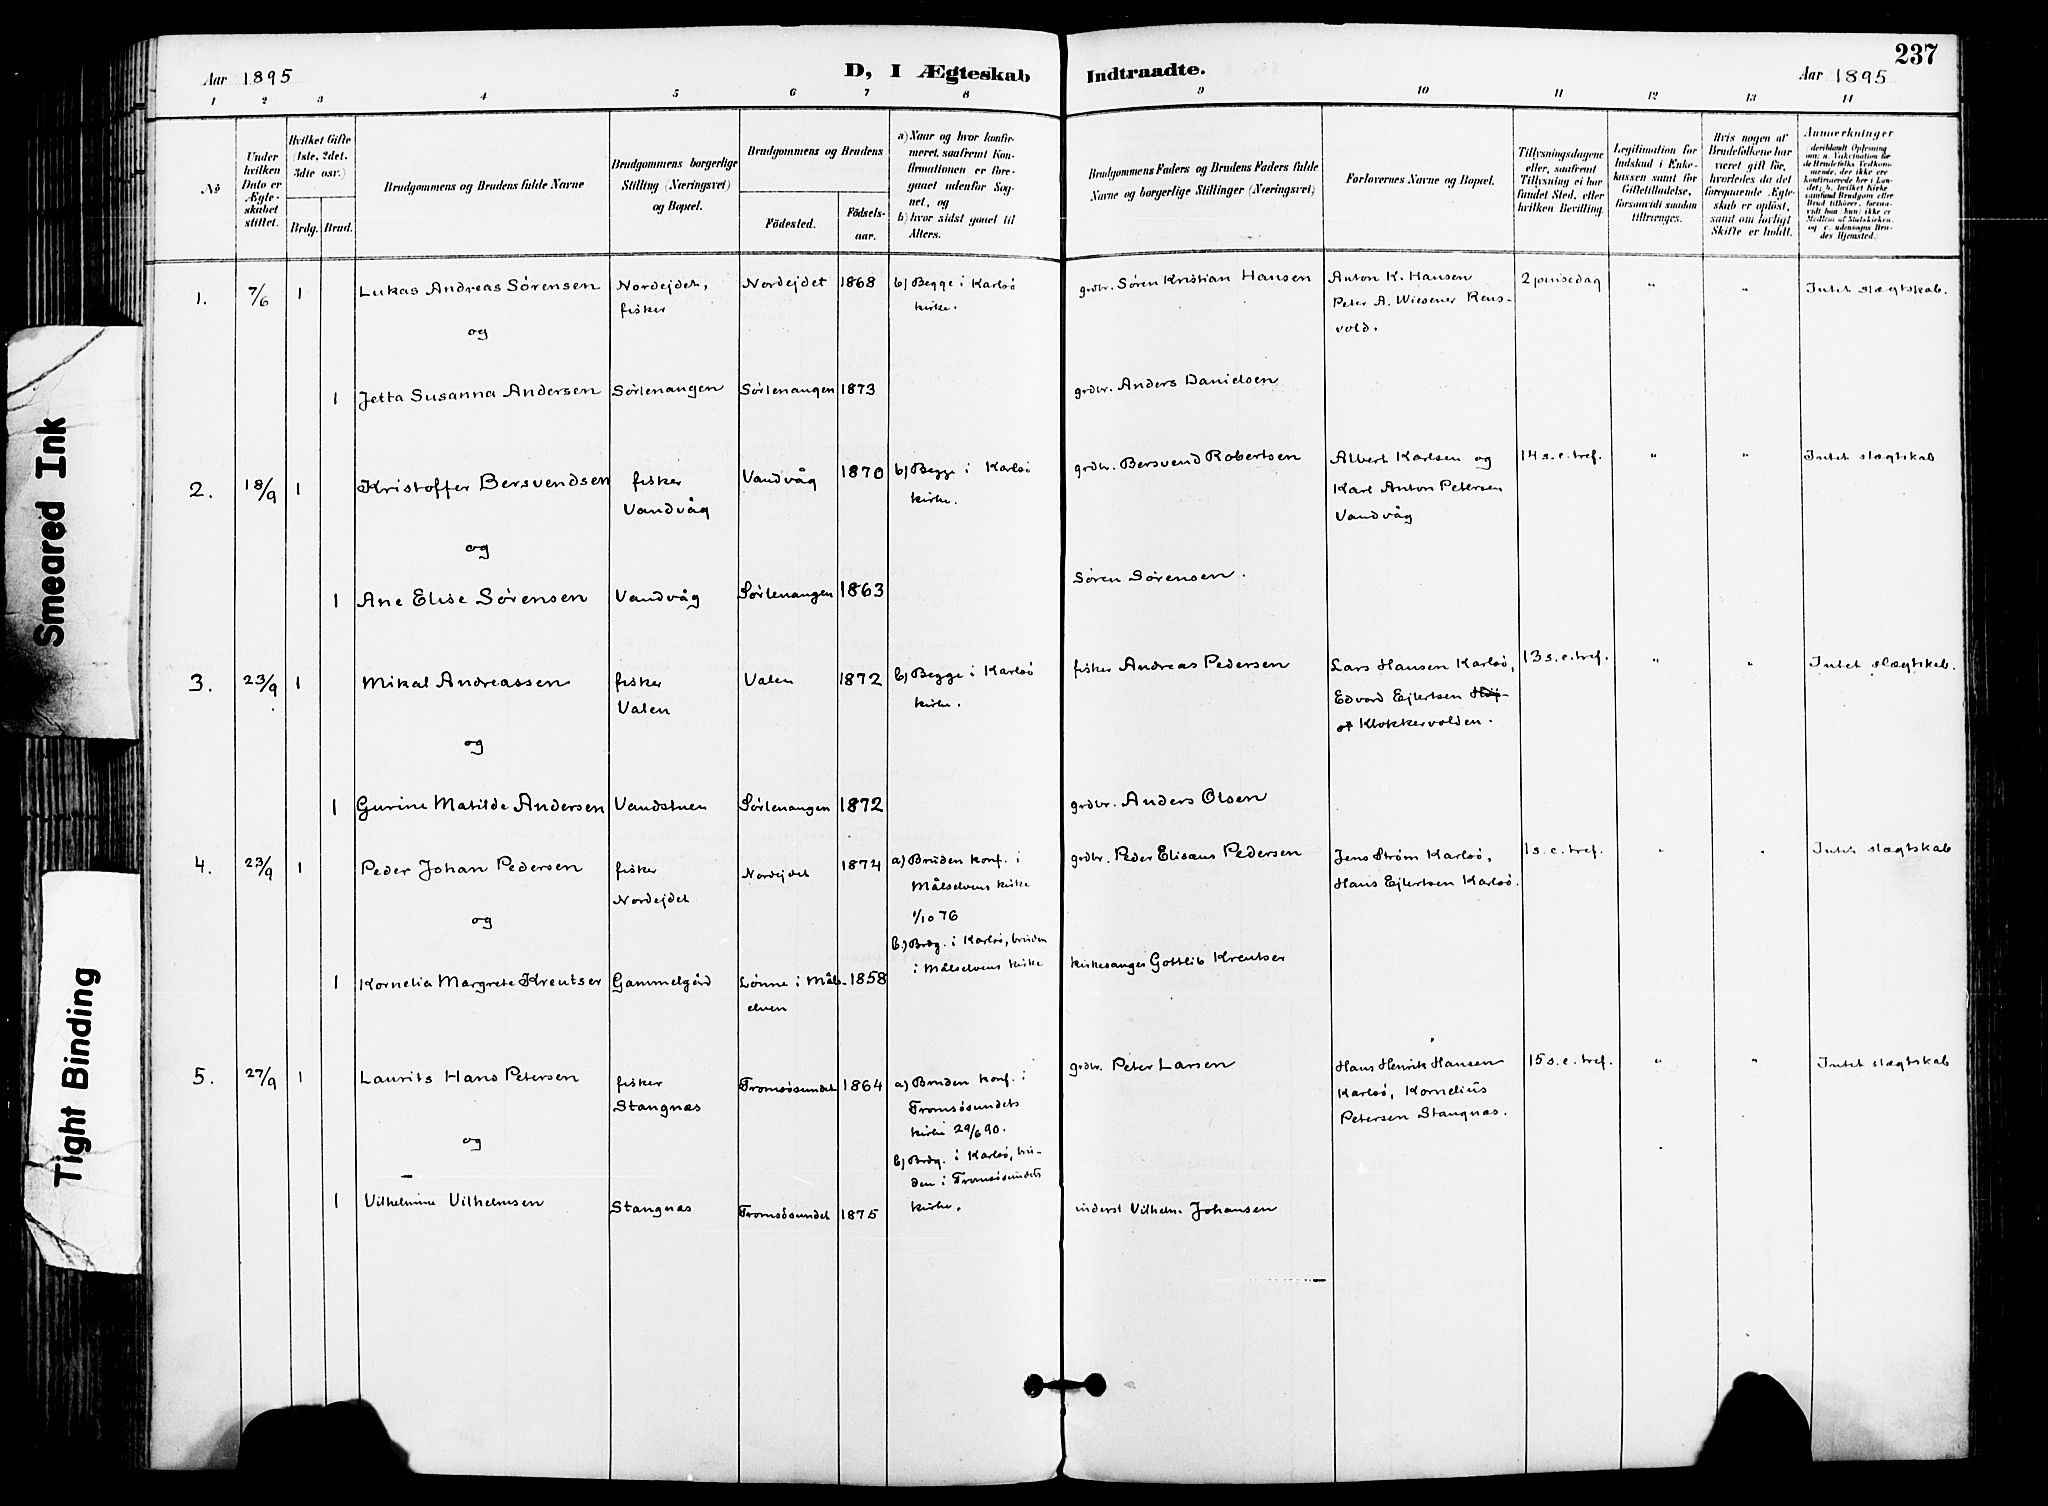 237
Aar 1895
D, I Ægteskab
Indtraadte.
Aar 1895
1 2 3 4 5 6 7 8 9 10 11 12 13 14
No
Under hvilken Dato er Ægteskabet stiftet.
Hvilket Gifte (1ste, 2det, 3die osv.)
Brdg. Brud.
Brudgommens og Brudens fulde Navne
Brudgommens borgerlige Stilling (Næringsvei) og Bopæl.
Brudgommens og Brudens
Fødested.
Fødselsaar.
a) Naar og hvor konfirmeret, saafremt Konfirmationen er foregaaet udenfor Sognet, og
b) hvor sidst gaaet til Alters.
Brudgommens Faders og Brudens Faders fulde Navne og borgerlige Stillinger (Næringsvei)
Forlovernes Navne og Bopæl.
Tillysningsdagene eller, saafremt Tillysning ei har fundet Sted, efter hvilken Bevilling.
Legitimation for Indskud i Enkekassen samt for Giftetilladelse, forsaavidt saadan tiltrænges.
Hvis nogen af Brudefolkene har været gift før, hvorledes da det foregaaende Ægteskab er opløst, samt om lovligt Skifte er holdt.
Anmærkninger
1. 7/6 1 Lukas Andreas Sørensen Nordejdet, Nordejdet 1868 b) Begge i Karlsø grdbr. Søren Kristian Hansen Anton K. Hansen 2 pinsedag " " Intet slægtskab.
fisker kirke. Peter A. Wiesener Rens-
og vold.
1 Jetta Susanna Andersen Sørlenangen Sørlenangen 1873 grdbr. Anders Danielsen
2. 18/9 1 Kristoffer Bersvendsen fisker Vandvåg 1870 b) Begge i Karlsø grdbr. Bersvend Robertsen Albert Karlsen og 14 s. e. tref. " " Intet slægtskab
Vandvåg kirke. Karl Anton Petersen
og Vandvåg
1 Ane Elise Sørensen Vandvåg Sørlenangen 1863 Søren Sørensen.
3. 23/9 1 Mikal Andreassen fisker Valen 1872 b) Begge i Karlsø fisker Andreas Pedersen Lars Hansen Karlsø, 13 s. e. tref. " " Intet slægtskab.
Valen kirke. Edvard Ejlertsen
og Klokkervolden.
1 Gurine Matilde Andersen Vandstuen Sørlenangen 1872 grdbr. Anders Olsen
4. 23/9 1 Peder Johan Pedersen fisker Nordejdet 1874 a) Bruden konf. i grdbr. Peder Elisæus Pedersen Jens Strøm Karlsø, 1 s. e. tref. " " Intet slægtskab
Nordejdet Målselvens kirke Hans Ejlertsen Karlsø.
og 1/10 76
b) Brdg. i Karlsø, bruden
1 Kornelia Margrete Kreutser Gammelgård Lønne i Måls- 1858 i Målselvens kirke kirkesanger Gottlib Kreutser
elven
5. 27/9 1 Laurits Hans Petersen fisker Tromsøsundet 1864 a) Bruden konf. i grdbr. Peter Larsen Hans Henrik Hansen 15 s. e. tref. " " Intet slægtskab
Stangnæs Tromsøsundets Karlsø, Kornelius
og kirke 29/6 90. Petersen Stangnæs.
b) Brdg. i Karlsø, bru-
den i Tromsøsundets
1 Vilhelmine Vilhelmsen Stangnæs Tromsøsundet 1875 kirke. inderst Vilhelm Johansen
Smeared Ink
Tight Binding